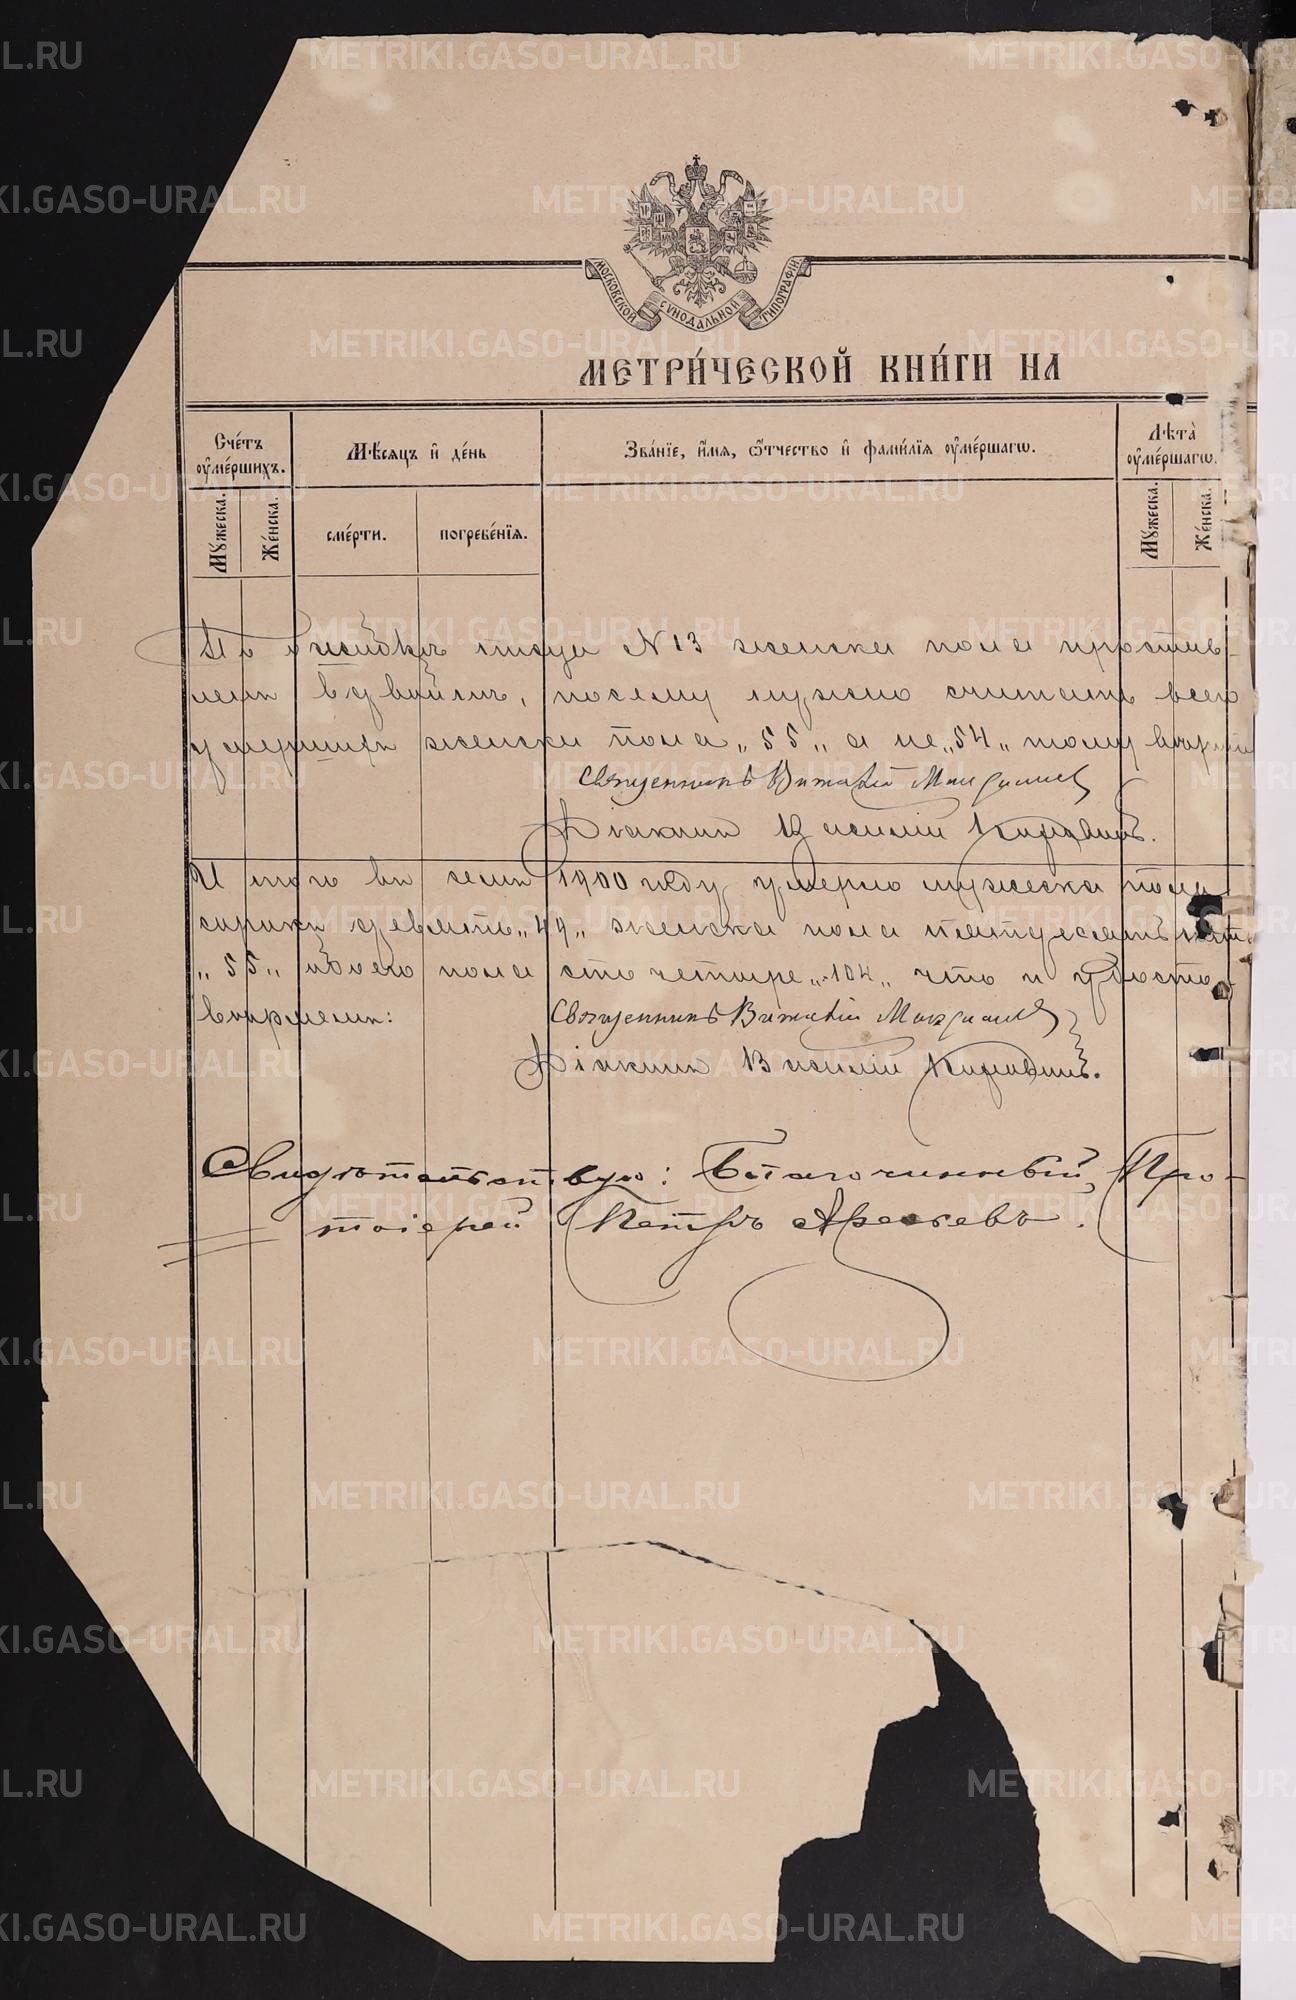 МОСКОВСКОЙ СѴНОДАЛЬНОЙ ТИПОГРАФІИ
МЕТРИ́ЧЕСКОЙ КНИ́ГИ НА
Сче́тъ оу҆ме́ршихъ.
Мѣ́сяцъ и҆ де́нь
Зва́нїе, и҆́мя, ѻ҆́тчество и҆ фами́лїя оу҆ме́ршагѡ.
Лѣта̀ оу҆ме́ршагѡ.
Му́жеска.
Же́нска.
сме́рти.
погребе́нїя.
Му́жеска.
Же́нска.
№ 13 женска пола простав-
ленъ вдвойнѣ, посему нужно считать всего
умершихъ женска пола „55„ а не „54„ тому вѣримъ
Священникъ Виталій
Діаконъ Василій
Итого въ семъ 1900 году умерло мужеска пола
сорокъ девять „49„ женска пола пятьдесятъ пять
„55„ обоего пола сто четыре „104„ что и удосто-
вѣряемъ:
Священникъ Виталій
Діаконъ Василій
Свидѣтельствую: Благочинный, Про-
тоіерей Петръ
METRIKI.GASO-URAL.RU